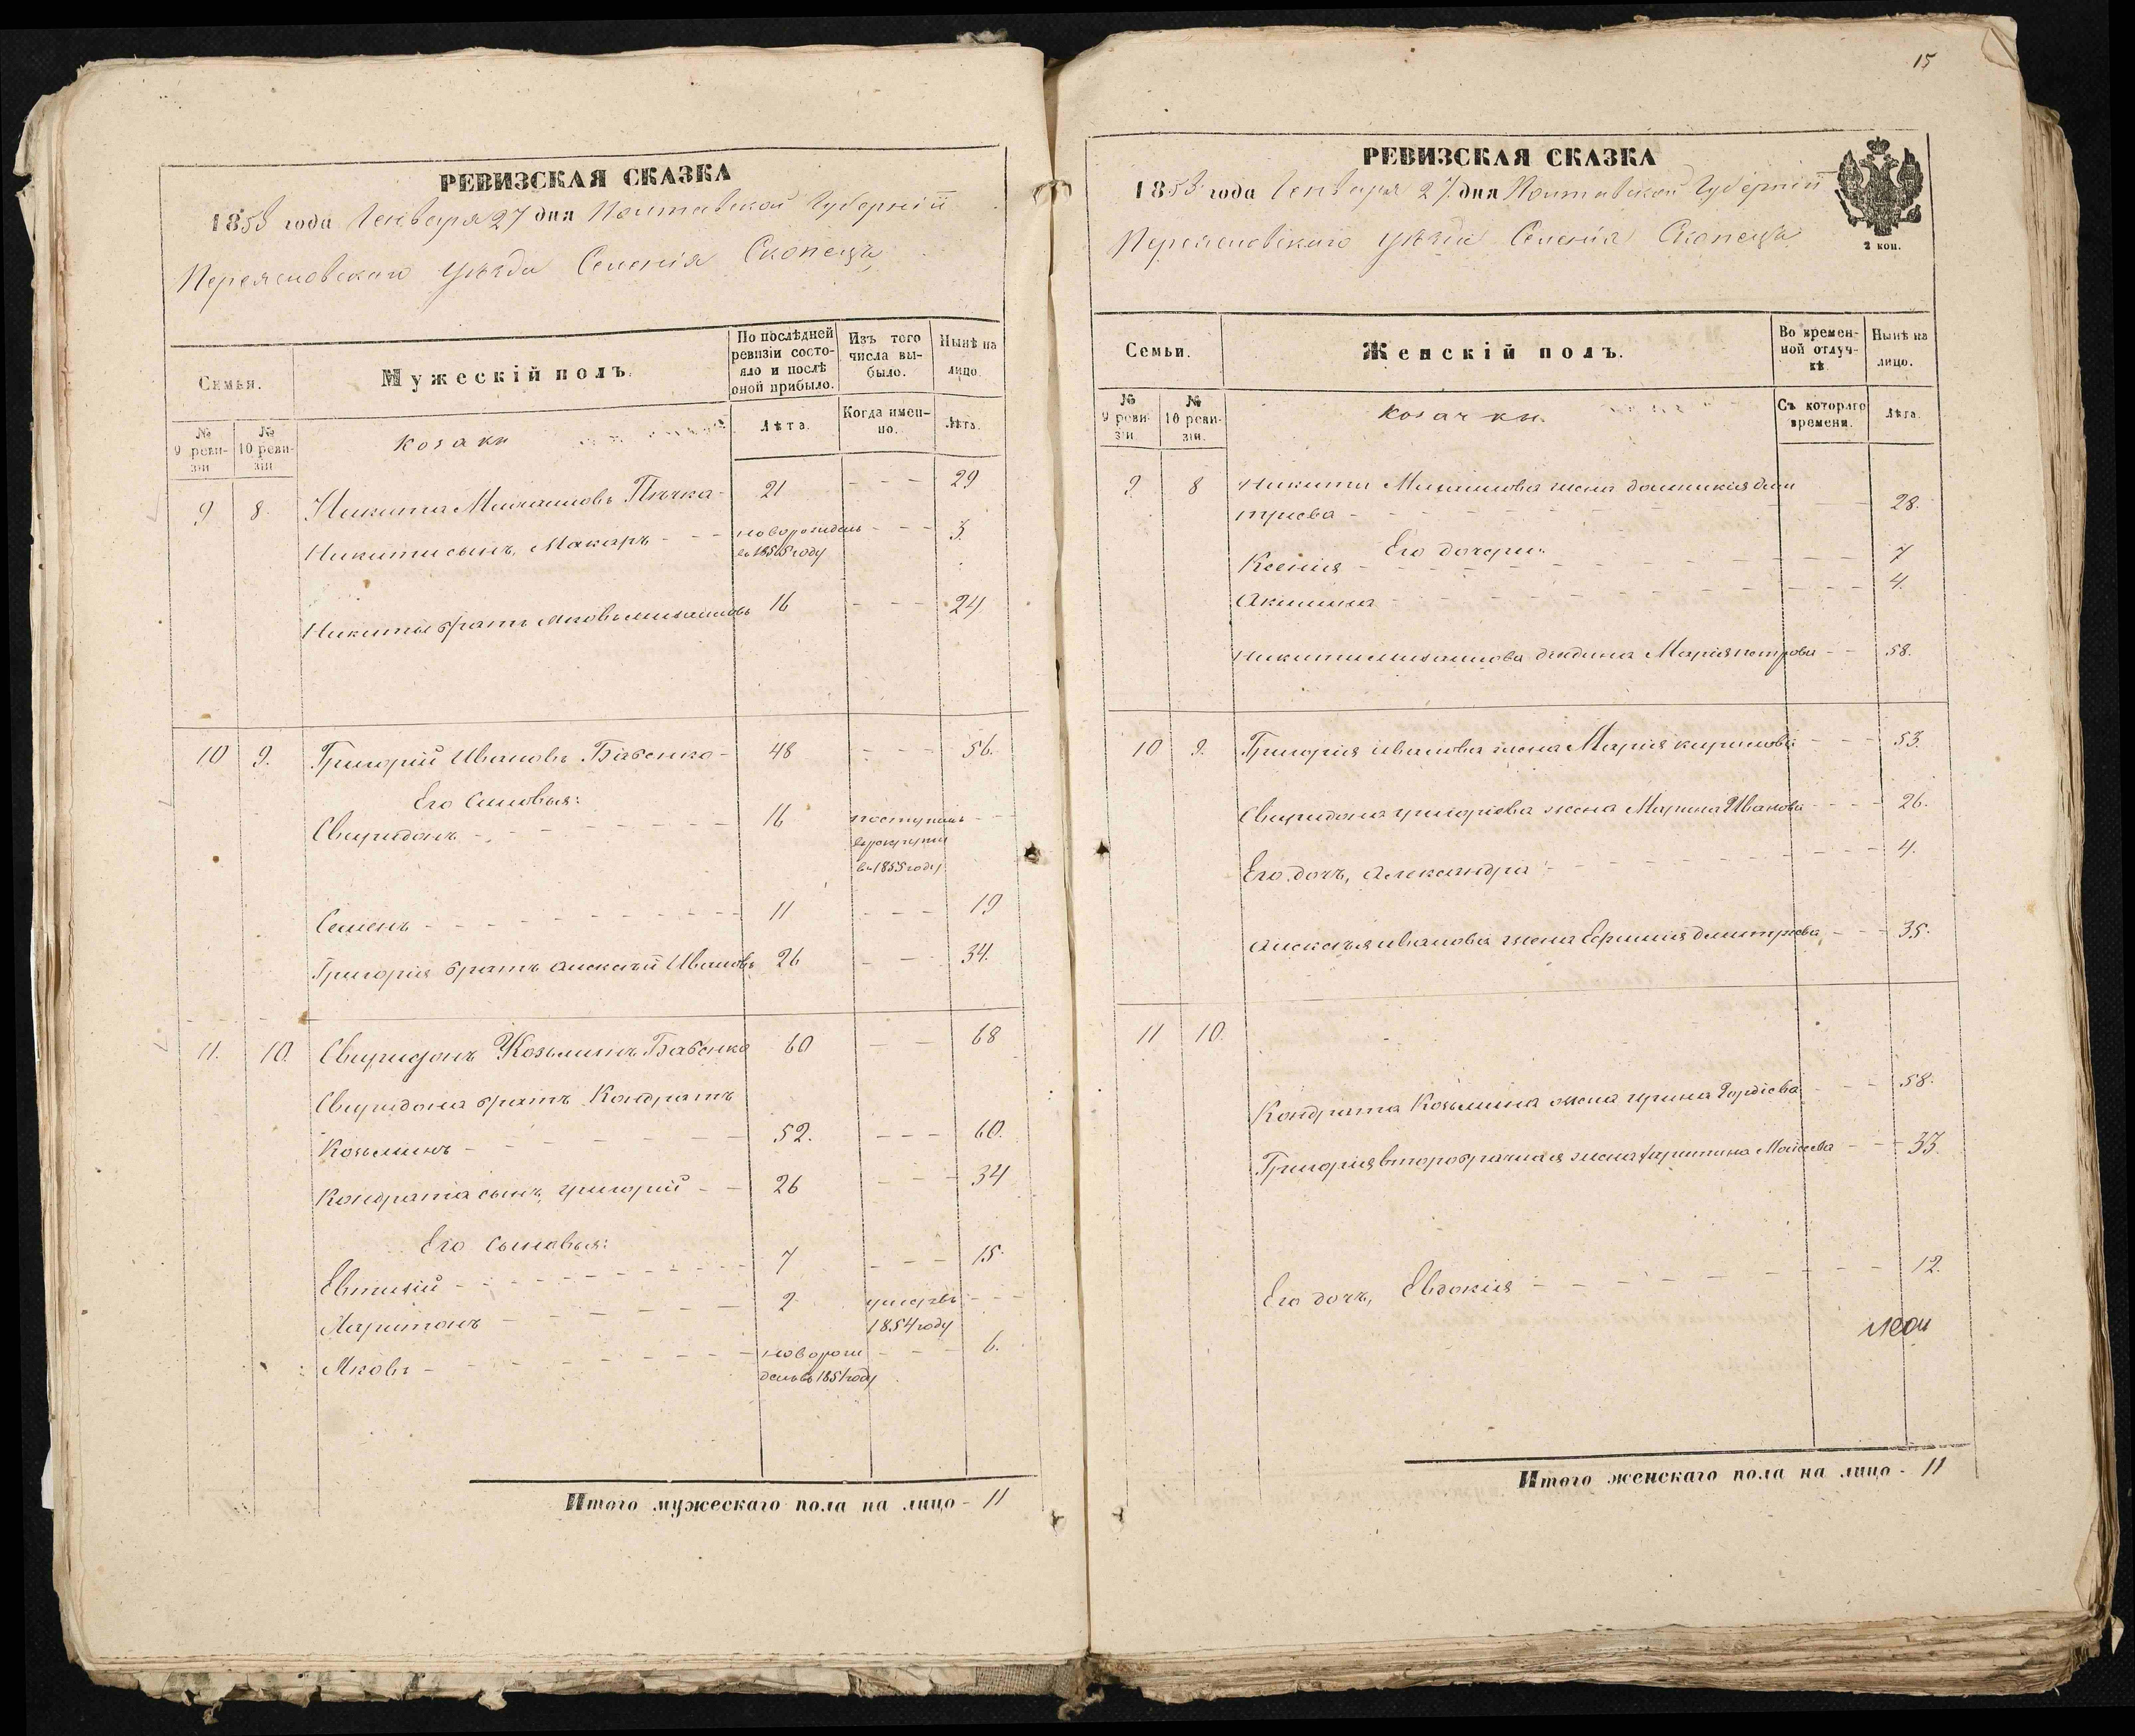 РЕВИЗСКАЯ СКАЗКА
1858 года Генваря 27 дня Полтавской Губернiи
Переясловскаго уѣзда Селенiя Скопецъ
Семья.
Мужескiй полъ.
По послѣдней ревизiи состо-
яло и послѣ
оной прибыло.
Изъ того
числа вы-
было.
Нынѣ на
лицо.
№
9 реви-
зiи
№
10 реви-
зiи
козаки
Лѣта.
Когда имен-
но.
Лѣта.
9 8. Никита Михаиловъ 21 - - - 29
Никиты сынъ, Макаръ - - новорожденъ - - - 3.
въ 1855 году
Никиты братъ Яковъ михаиловъ 16 - - - 24.
10 9. Григорiй Ивановъ Бабенко - 48 - - - 56.
Его Сыновья:
Свиридонъ - - - 16 поступилъ - -
в рекруты
въ 1855 году
Семенъ - - - 11 - - - 19
Григорiя братъ Алексѣй Ивановъ 26 - - 34.
11. 10. Свиридонъ Козьминъ Бабенко 60 - - 68
Свиридона братъ Кондратъ
Козьминъ - - - 52. - - - 60.
Кондрата сынъ, григорiй - - 26 - - - 34
Его сыновья:
Евтихiй - - - 7 - - - 15.
Харитонъ - - - 2 умеръ - - -
1854 году
Яковъ - - - новорож - - - 6.
денъ въ 1851 году
Итого мужескаго пола на лицо - 11
15
РЕВИЗСКАЯ СКАЗКА
1858 года Генваря 27 дня Полтавской Губернiи
Переясловскаго уѣзда Селенiя Скопецъ
2 коп.
Семьи.
Женскiй полъ.
Во времен-
ной отлуч-
кѣ
Нынѣ на
лицо.
№
9 реви-
зiи
№
10 реви-
зiи.
козачки.
Съ котораго
времени.
Лѣта.
9. 8 Никиты Михаилова жена домникiя дми
трiева - - - 28.
Его дочери:
Ксенiя - - - 7
Акилина - - - 4.
Никиты михаилова дядина Марiя петрова - - 58.
10 9. Григорiя иванова жена Марiя кирилова - - - 53.
Свиридона григорiева жена Марина Иванова - - - 26.
Его дочь, Александра - - - 4.
Алексѣя иванова жена Ефимiя дмитрiева - - - 35.
11 10.
Кондрата Козьмина жена ирина Гордiева - - - 58.
Григорiя второбрачная жена Моисеева - - - 33.
Его дочь, Евдокiя - - - 12.
Итого женскаго пола на лицо - 11